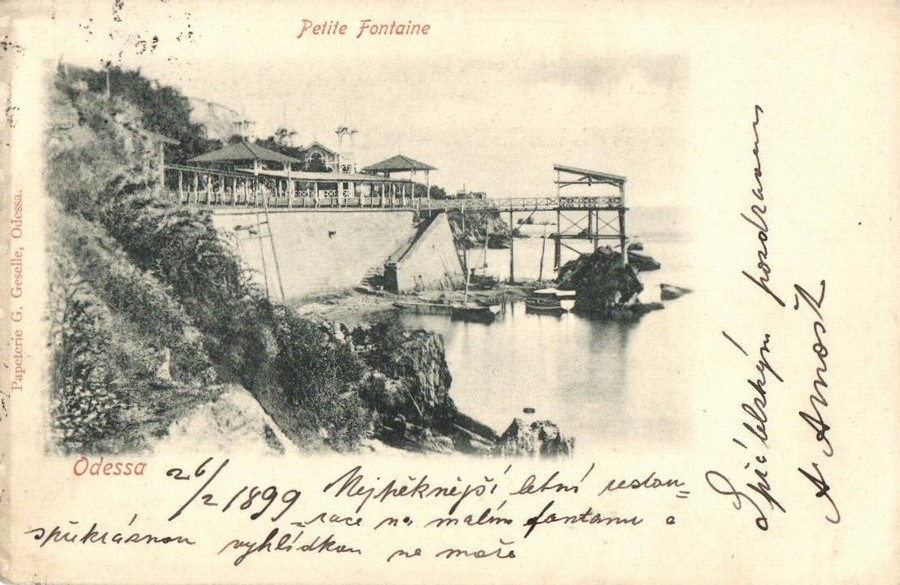 Petite Fontaine
Papeterie G. Geselle, Odessa.
Odessa
26/2 1899 Nejpěknější letní restau=
=race na malém fontanu s
překrásnou vyhlídkou na moře
S přátelským pozdravem
A Arnošt